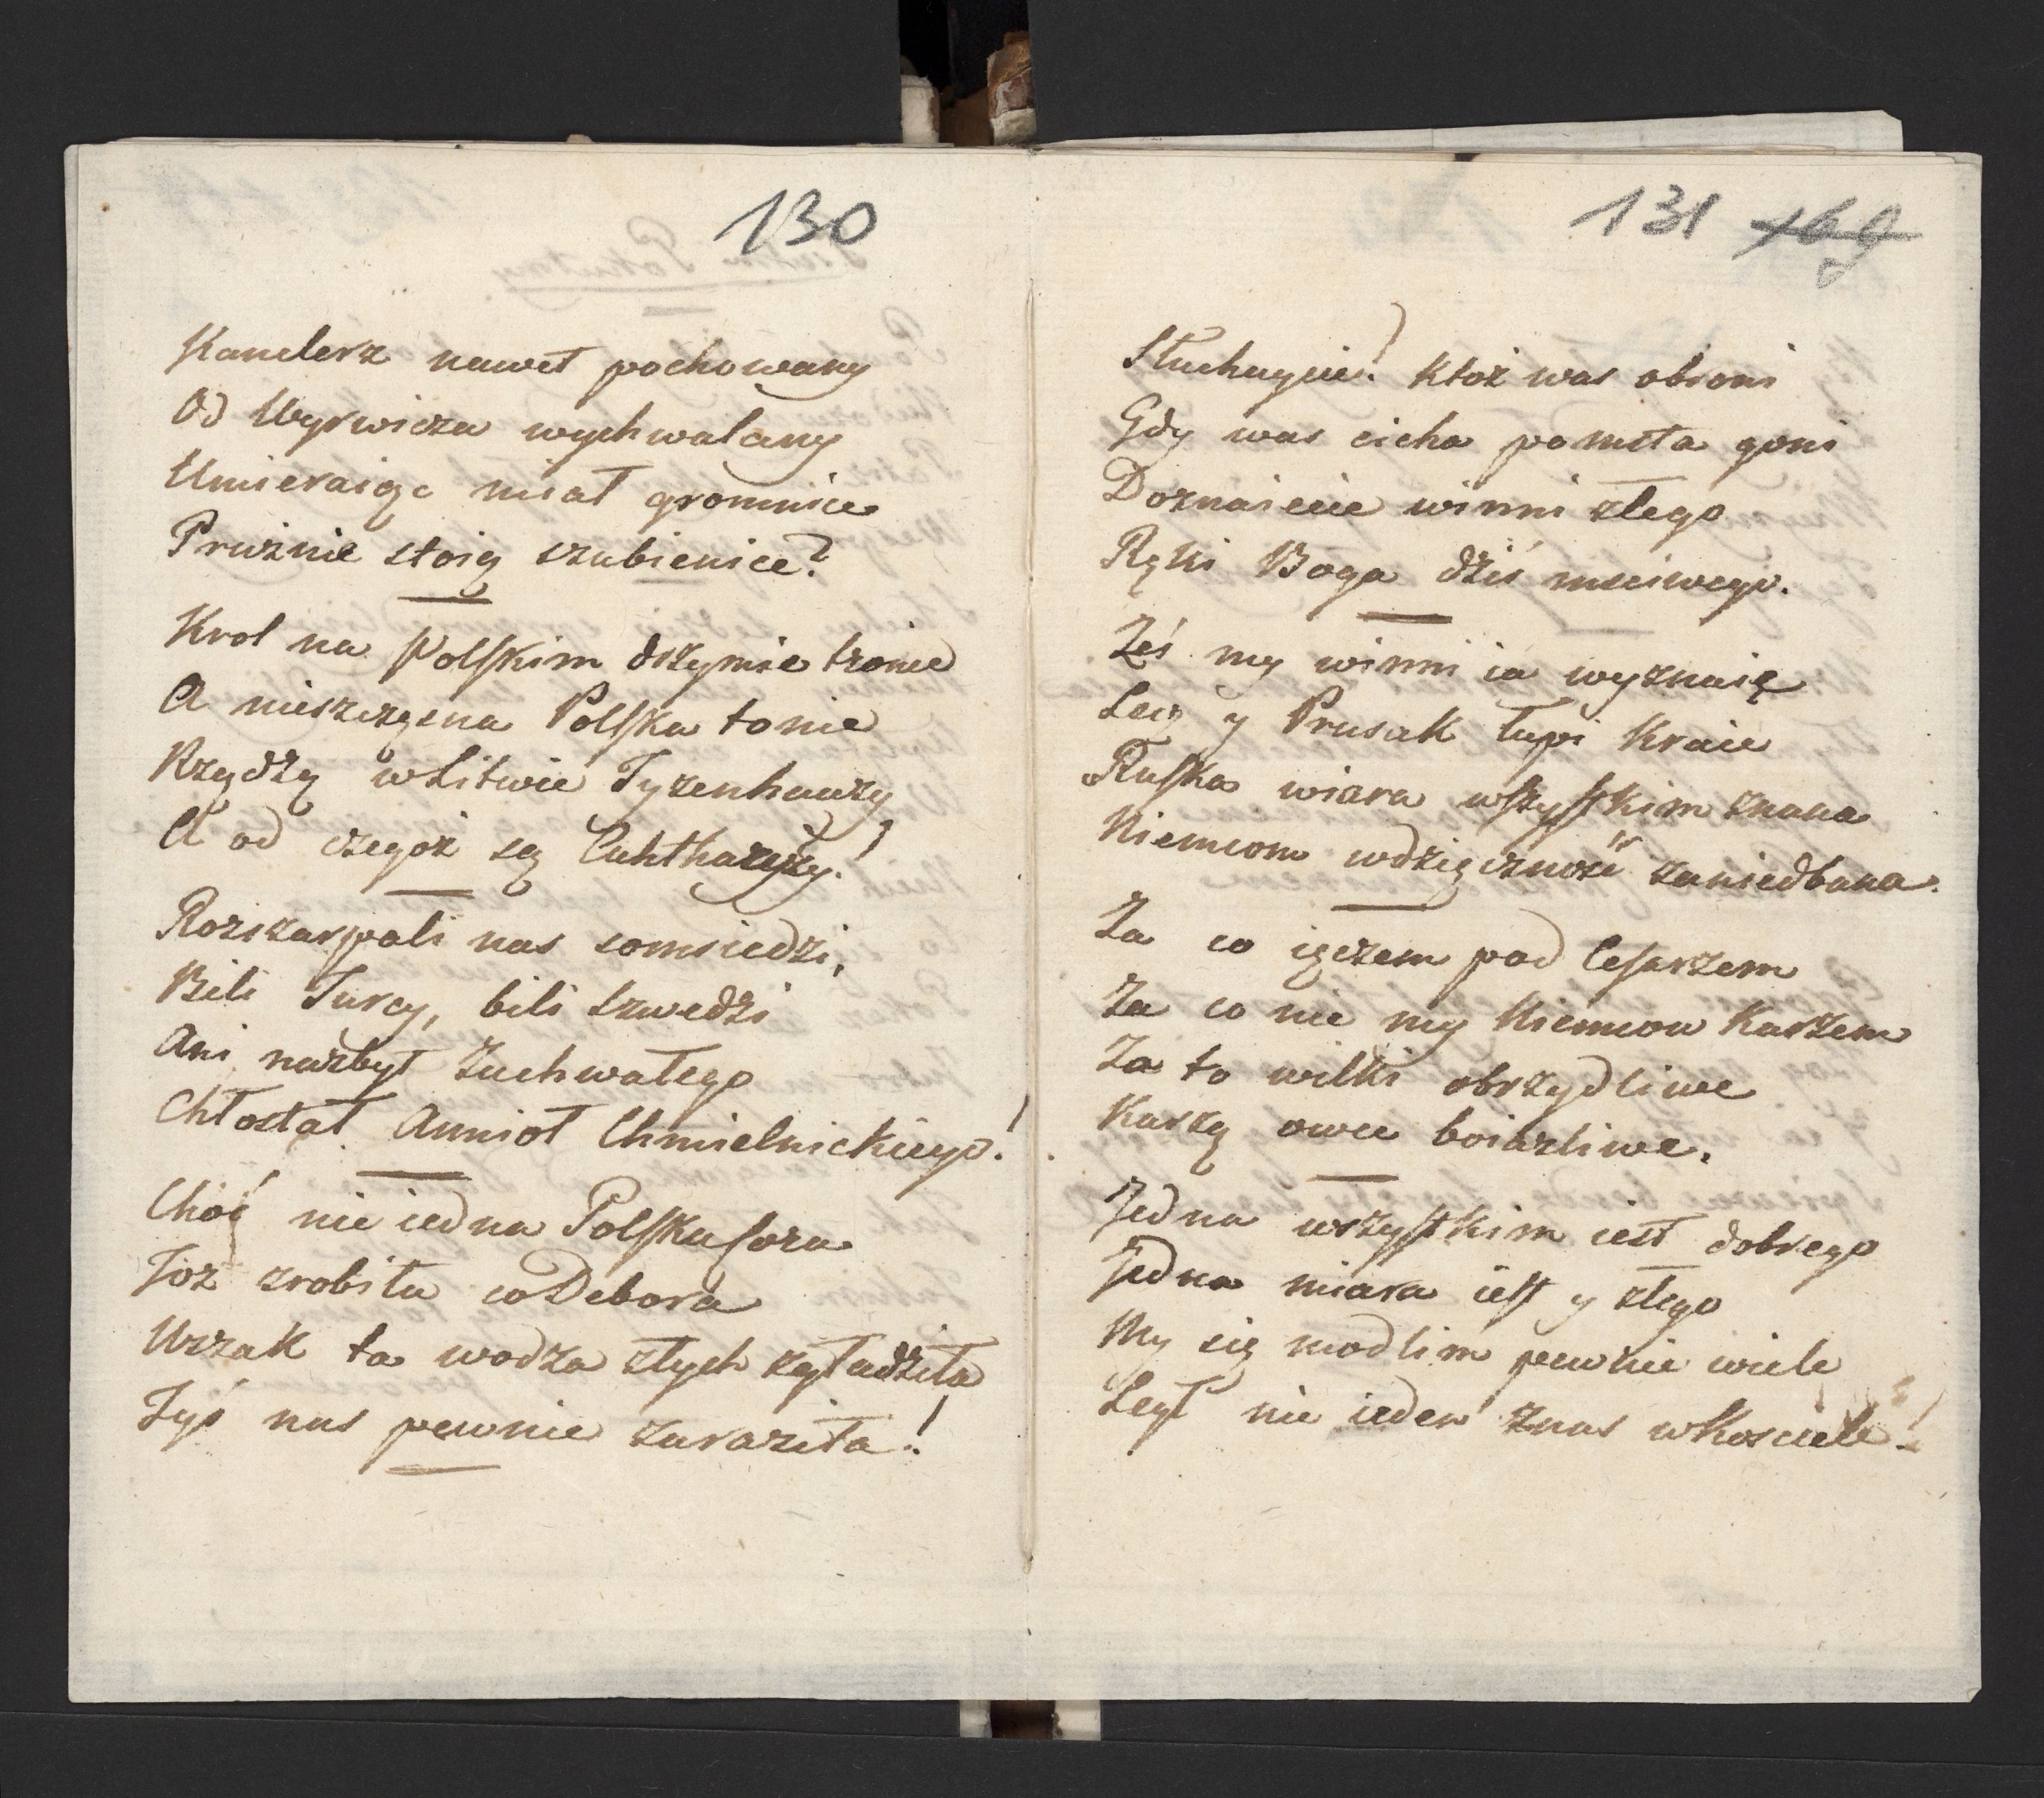 130
Kanclerz nawet pochowany
Od Wyrwicza wychwalany
Umieraiąc miał gromnice
Prużnie stoią szubienice?
Krol na Polskim drzymie tronie
A nieszczęsna Polska tonie
Rządzą w Litwie Tyzenhauzy
A od czegoż są
Rozszarpali nas somsiedzi,
Bili Turcy, bili Szwedzi
Ani nazbyt Zuchwałego
Chłostał Annioł Chmielnickiego!
Choć nie iedna Polska
Toż zrobiła co Debora
Wszak ta wodza złych zgładziła
Tyś nas pewnie zaraziła!
131 169
Słuchaycie! Ktoż was obroni
Gdy was cicha pomsta goni
Doznaiecie winni złego
Ręki Boga dziś msciwego.
Żeś my winni ia wyznaię
Lecz y Prusak łupi Kraie
Ruska wiara wszystkim znana
Niemcom wdzięczność zaniedbana.
Za co ięczem pod Cesarzem
Za co nie my Niemcow Karzem
Za to wilki obrzydliwe
Karzą owce boiazliwe.
Jedna wszystkim iest dobrego
Jedna miara iest y złego
My się modlim pewnie wiele
Legł nie ieden znas wKosciele!